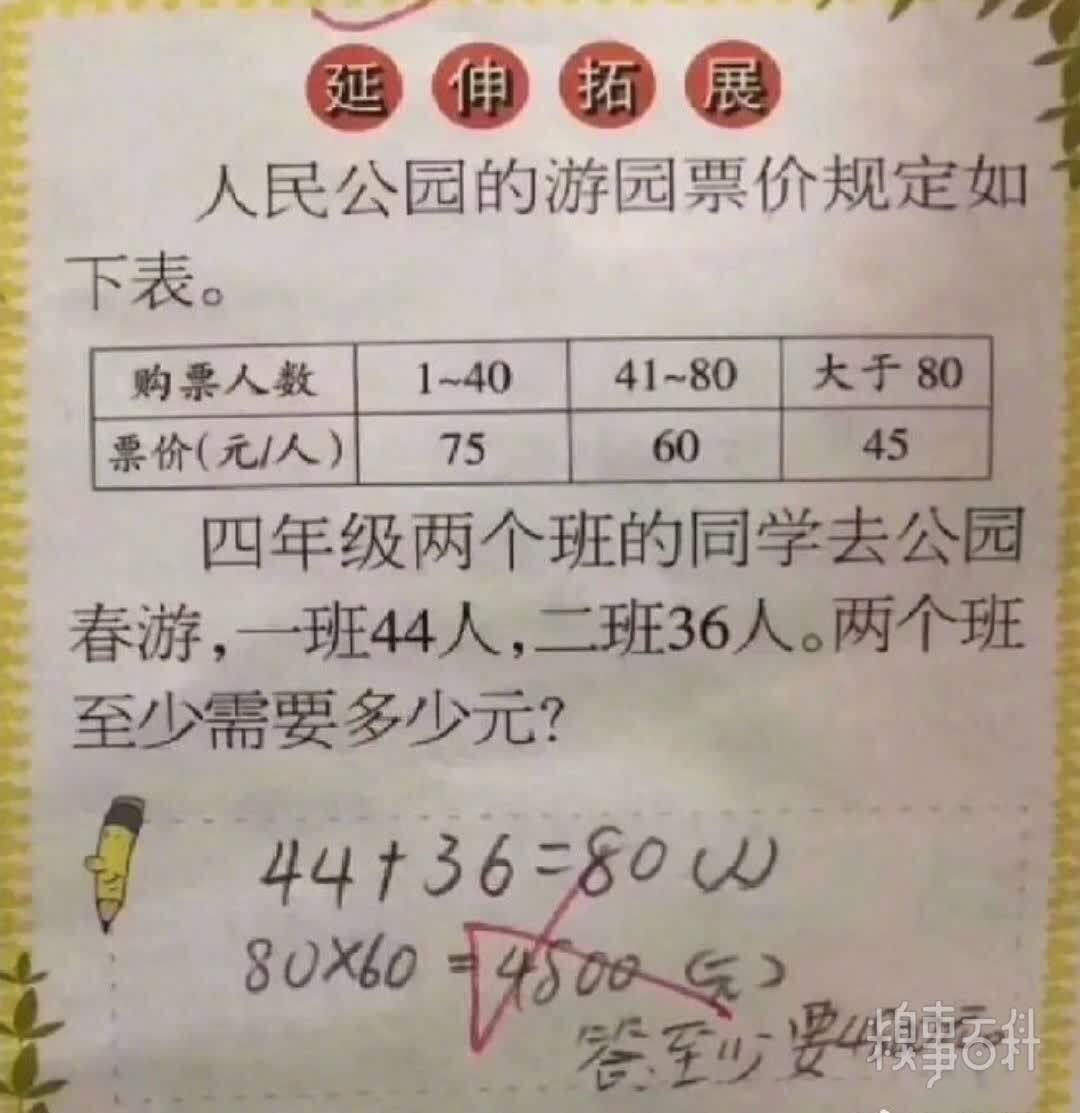 延伸拓展
人民公园的游园票价规定如
下表。
购票人数 1~40 41~80 大于80
票价(元/人) 75 60 45
四年级两个班的同学去公园
春游,一班44人,二班36人。两个班
至少需要多少元?
44+36=80(人)
80×60=4800(元)
答:至少要
糗事百科